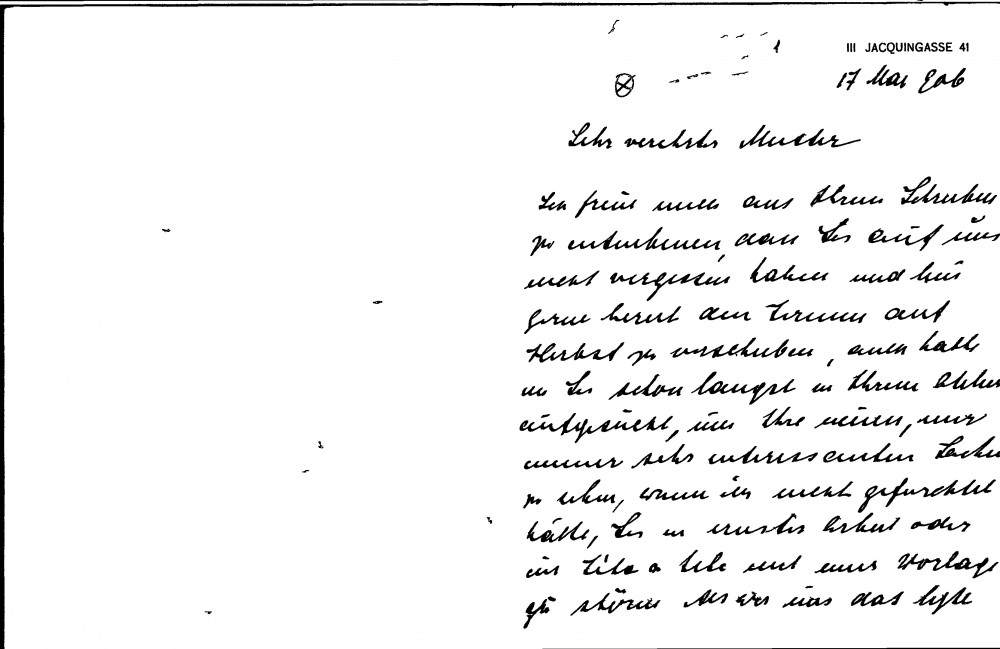 1
III JACQUINGASSE 41
17 Mai 906
Sehr verehrter Meister
Ich freue mich aus Ihrem Schreiben
zu entnehmen, dass Sie auf uns
nicht vergessen haben und bin
gerne bereit den Termin auf
Herbst zu verschieben, auch hatte
ich Sie schon längst in Ihrem Atelier
aufgesucht, um Ihre neuen, mir
immer sehr interessanten Sachen
zu sehen, wenn ich nicht gefürchtet
hätte, Sie in ernster Arbeit oder
im Tête a tete mit einer Vorlage
zu stören Als wir uns das letzte